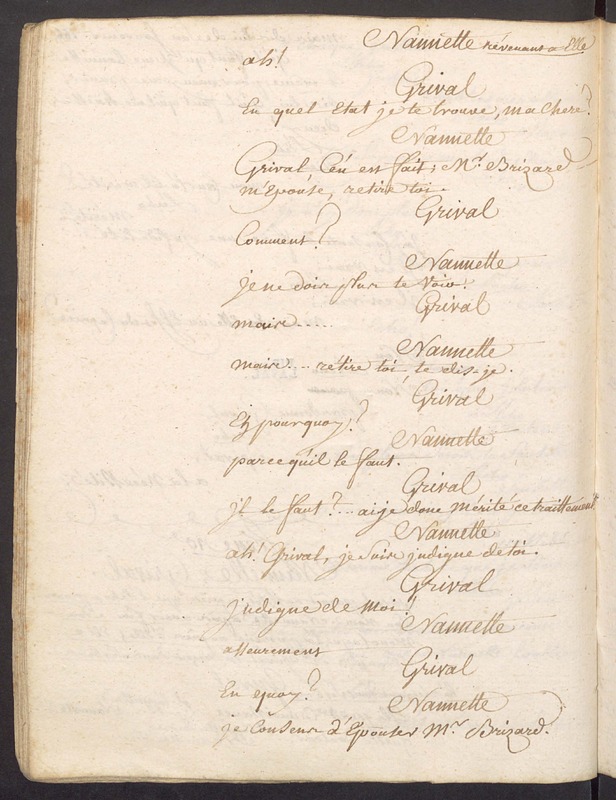 Nannette révenant a Elle
ah!
Grival
En quel Etat je te trouve, ma chere?
Nannette
Grival, C'en est fait; Mr. Brizard
m'Epouse, retire toi.
Grival
Comment?
Nannette
je ne dois plus te voir!
Grival
mais.....
Nannette
mais... retire toi, te dis-je.
Grival
Et pourquoy?
Nannette
parcequ'il le faut.
Grival
jl le faut?... aije donc mérité ce traittement?
Nannette
ah! Grival, je suis jndigne de toi.
Grival
jndigne de Moi!
Nannette
asseurement
Grival
En quoy?
Nannette
je Consens d'Epouser Mr. Brizard.